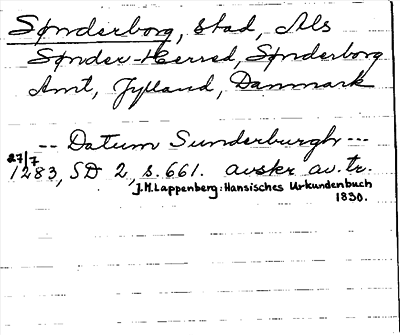 Sønderborg, stad, Als
Sønder-Herred, Sønderborg
Amt, Jylland, Danmark
-- Datum Sunderburgh ---
27/7
1283, SD 2, s. 661. avskr av. tr.
J.M. Lappenberg: Hansisches Urkundenbuch
1830.